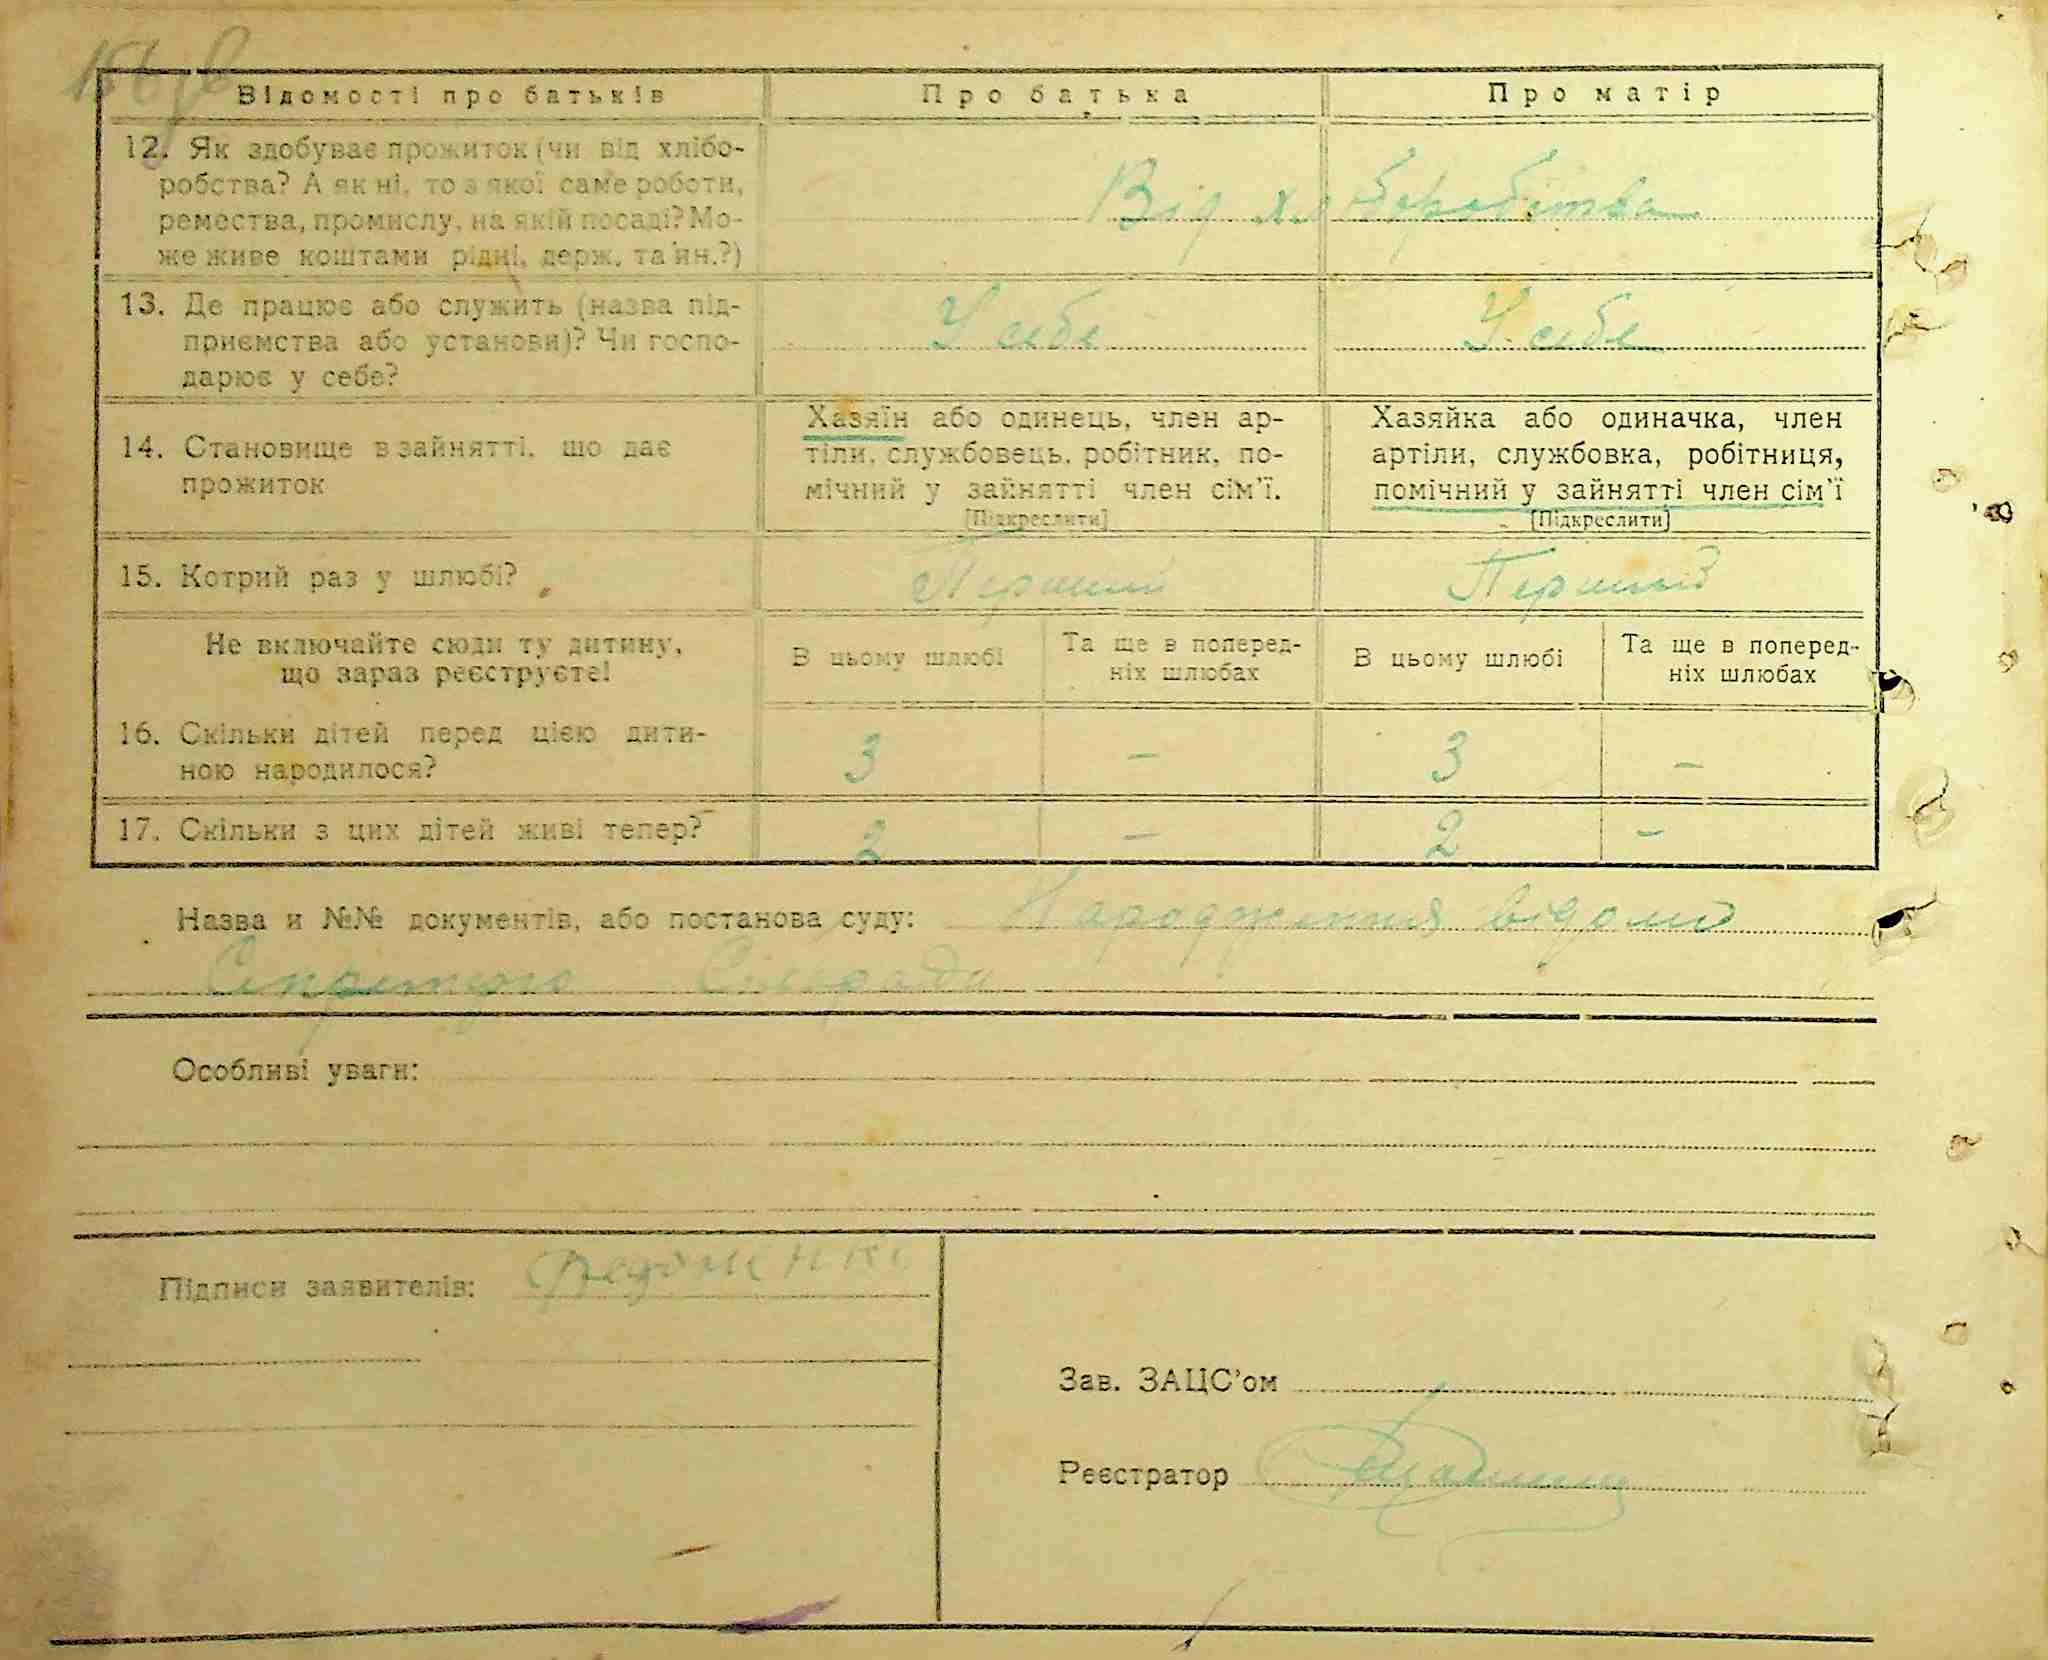 Відомості про батьків Про батька Про матір
12. Як здобуває прожиток (чи від хлібо-
робства? А як ні, то з якої саме роботи,
ремества, промислу, на якій посаді? Мо-
же живе коштами рідні, держ. та ин.?)
Від хліборобства
13. Де працює або служить (назва під-
приємства або установи)? Чи госпо-
дарює у себе?
У себе У себе
14. Становище в зайнятті, що дає
прожиток
Хазяїн або одинець, член ар-
тіли, службовець, робітник, по-
мічний у зайнятті член сім'ї.
[Підкреслити]
Хазяйка або одиначка, член
артіли, службовка, робітниця,
помічний у зайнятті член сім'ї
[Підкреслити]
15. Котрий раз у шлюбі? Перший Перший
Не включайте сюди ту дитину,
що зараз реєструєте!
В цьому шлюбі
Та ще в поперед-
ніх шлюбах
В цьому шлюбі
Та ще в поперед-
ніх шлюбах
16. Скільки дітей перед цією дити-
ною народилося?
3 – 3 –
17. Скільки з цих дітей живі тепер? 2 – 2 –
Назва и №№ документів, або постанова суду: Народження відомо
Секретарю Сільради
Особливі уваги:
Підписи заявителів:
Зав. ЗАЦС'ом
Реєстратор